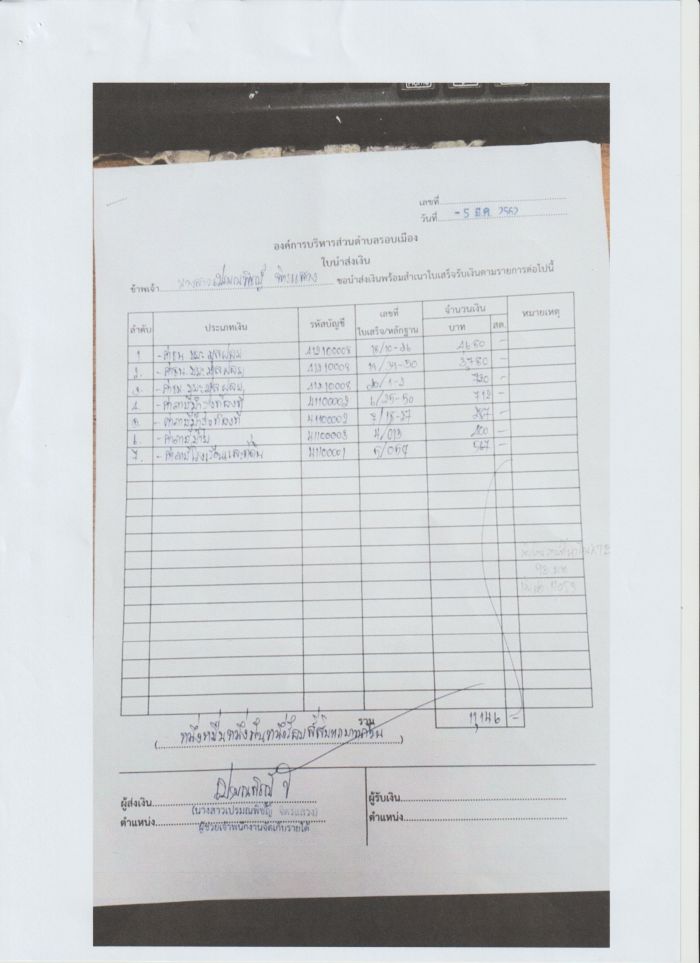 เลขที่
วันที่ - 5 มี.ค. 2562
องค์การบริหารส่วนตำบลรอบเมือง
ใบนำส่งเงิน
ข้าพเจ้า นางสาวเปรมณพิชญ์ จิตรแสวง ขอนำส่งเงินพร้อมสำเนาใบเสร็จรับเงินตามรายการต่อไปนี้
ลำดับ ประเภทเงิน รหัสบัญชี เลขที่ ใบเสร็จ/หลักฐาน จำนวนเงิน บาท สต. หมายเหตุ
1 - ค่าธน. ขยะมูลฝอย 41210008 18/10-26 -
2. - ค่าธน. ขยะมูลฝอย 41210008 19/31-50 3,780 -
3. - ค่าธน. ขยะมูลฝอย 41210008 20/1-2 720 -
4. - ค่าภาษีบำรุงท้องที่ 41100002 6/25-50 712 -
5. - ค่าภาษีบำรุงท้องที่ 41100002 7/18-27 287 -
6. - ค่าภาษีป้าย 41100003 4/013 400 -
7. - ค่าภาษีโรงเรือนและที่ดิน 41100001 5/054 567 -
รวม 11,146 -
(หนึ่งหมื่นหนึ่งพันหนึ่งร้อยสี่สิบหกบาทถ้วน)
ผู้ส่งเงิน
(นางสาวเปรมณพิชญ์ จิตรแสวง)
ตำแหน่ง ผู้ช่วยเจ้าพนักงานจัดเก็บรายได้
ผู้รับเงิน
ตำแหน่ง